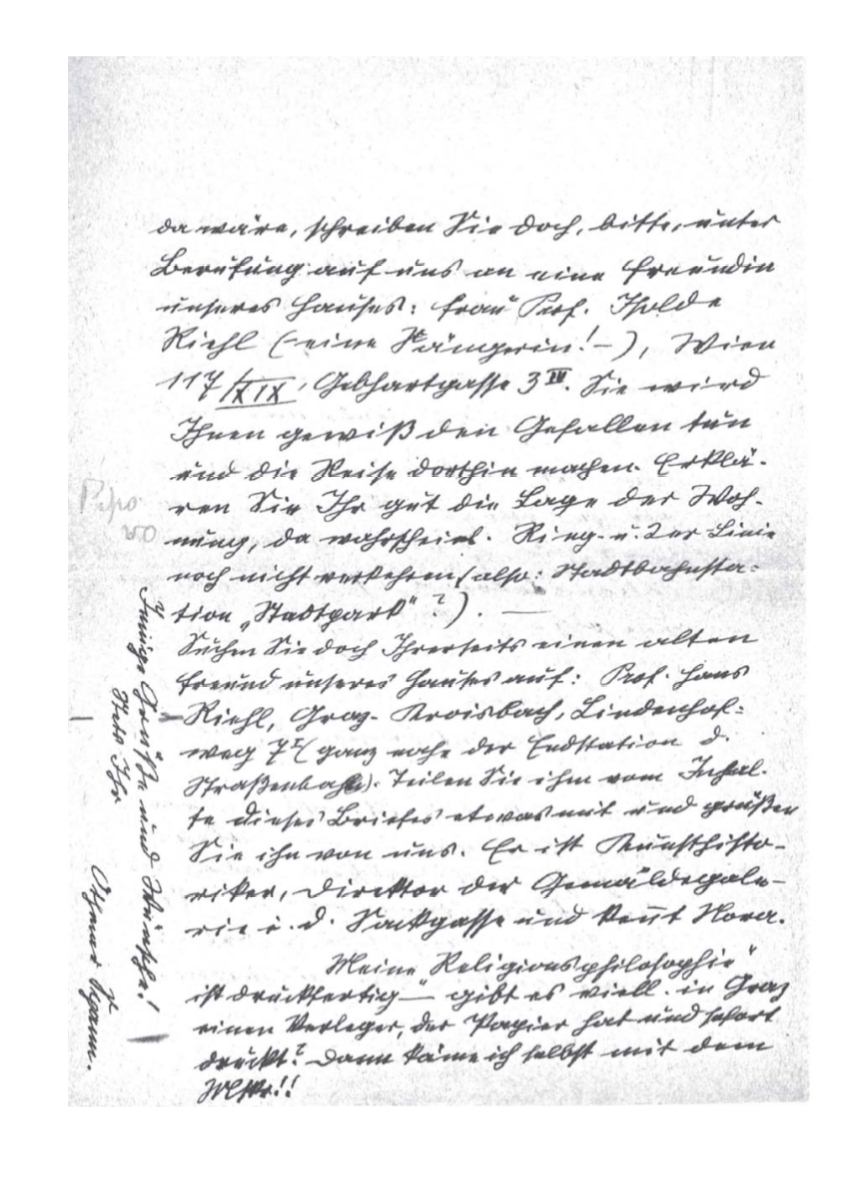 da wäre, schreiben Sie doch, bitte, unter
Berufung auf uns an eine Freundin
unseres Hauses: Frau Prof. Isolde
Riehl (– eine Sängerin! –), Wien
117/XIX, Gebhartgasse 3 IV. Sie wird
Ihnen gewiß den Gefallen tun
und die Reise dorthin machen. Erklä-
ren Sie Ihr gut die Lage der Woh-
nung, da wahrscheinl. Ring- u. 2er Linie
noch nicht verkehren (also: Stadtbahnsta-
tion „Stadtpark“?). —
Suchen Sie doch Ihrerseits einen alten
Freund unseres Hauses auf: Prof. Hans
Riehl, Graz-Kroisbach, Lindenhof-
weg 7 I (ganz nahe der Endstation d.
Straßenbahn). Teilen Sie ihm vom Inhal-
te dieses Briefes etwas mit und grüßen
Sie ihn von uns. Er ist Kunsthisto-
riker, Direktor der Gemäldegale-
rie i. d. Sackgasse und kennt Nora.
Meine „Religionsphilosophie“
ist druckfertig – gibt es viell. in Graz
einen Verleger, der Papier hat und sofort
druckt? Dann käme ich selbst mit dem
Mskr!!
Innige Grüße und Wünsche!
Stets Ihr
Othmar Spann.